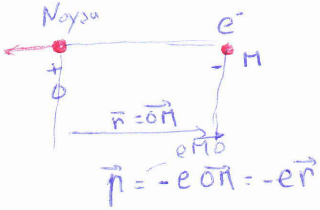 Noyau e⁻
+ - M
O
r⃗ = OM⃗
eMO
p⃗ = -e OM⃗ = -e r⃗